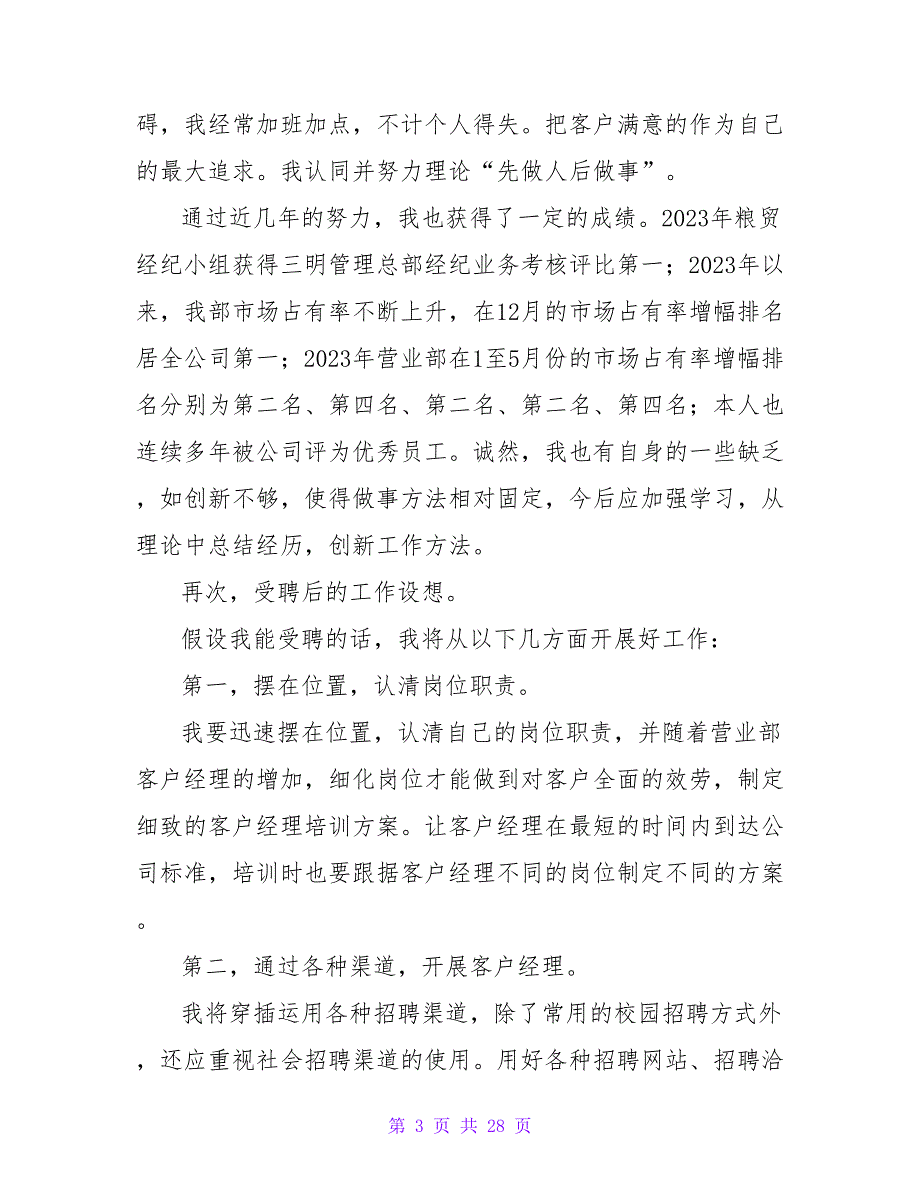 碍，我经常加班加点，不计个人得失。把客户满意的作为自己
的最大追求。我认同并努力理论“先做人后做事”。
通过近几年的努力，我也获得了一定的成绩。2023年粮贸
经纪小组获得三明管理总部经纪业务考核评比第一；2023年以
来，我部市场占有率不断上升，在12月的市场占有率增幅排名
居全公司第一；2023年营业部在1至5月份的市场占有率增幅排
名分别为第二名、第四名、第二名、第二名、第四名；本人也
连续多年被公司评为优秀员工。诚然，我也有自身的一些缺乏
，如创新不够，使得做事方法相对固定，今后应加强学习，从
理论中总结经历，创新工作方法。
再次，受聘后的工作设想。
假设我能受聘的话，我将从以下几方面开展好工作：
第一，摆在位置，认清岗位职责。
我要迅速摆在位置，认清自己的岗位职责，并随着营业部
客户经理的增加，细化岗位才能做到对客户全面的效劳，制定
细致的客户经理培训方案。让客户经理在最短的时间内到达公
司标准，培训时也要跟据客户经理不同的岗位制定不同的方案
。
第二，通过各种渠道，开展客户经理。
我将穿插运用各种招聘渠道，除了常用的校园招聘方式外
，还应重视社会招聘渠道的使用。用好各种招聘网站、招聘洽
第 3 页 共 28 页